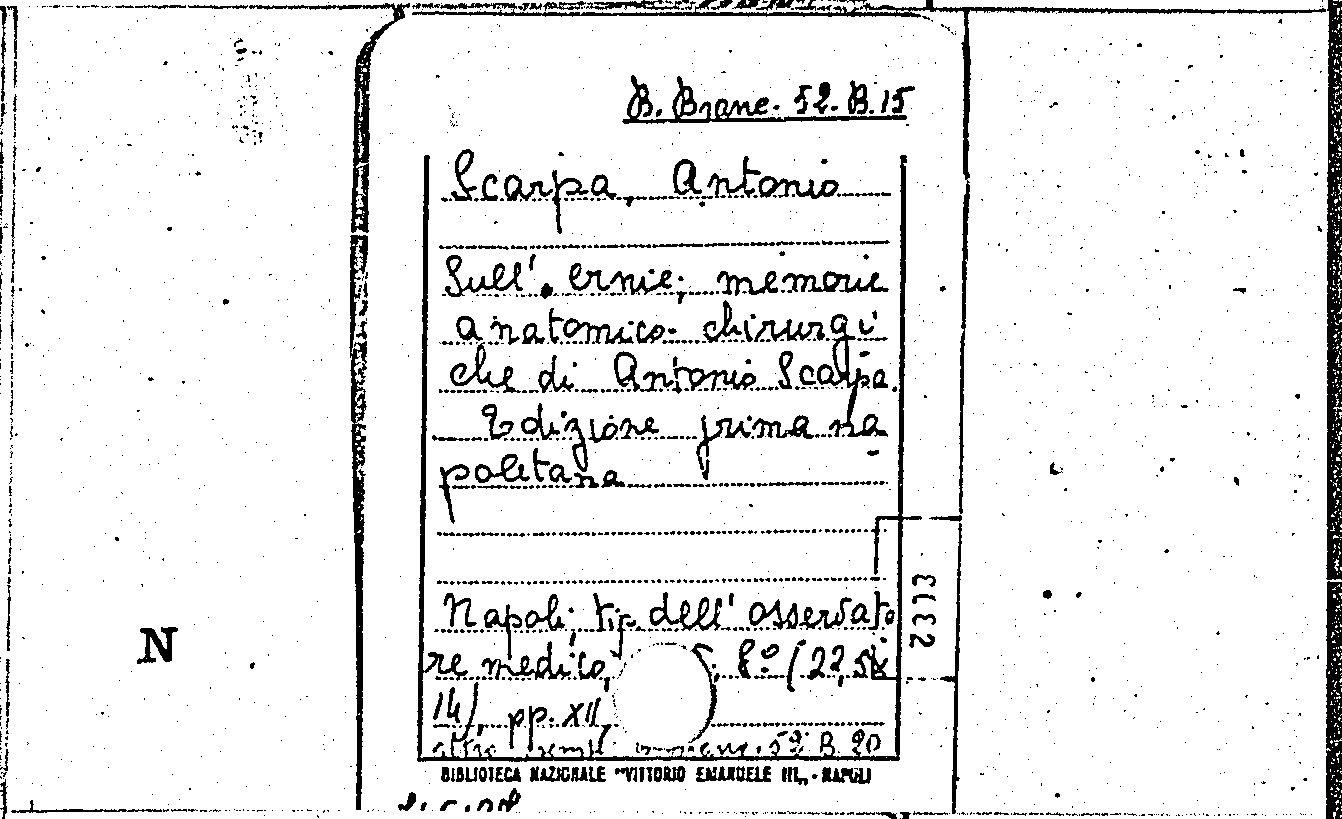 B. Branc. 52. B.15
Scarpa, Antonio
Sull'. ernie; memorie
anatomico-chirurgi
che di Antonio Scarpa.
Edizione prima na
poletana
Napoli, tip. dell' osservato
re medico, 5, 8° (22,5x
14), pp. XII,
altro 52 B 20
2313
N
BIBLIOTECA NAZIONALE "VITTORIO EMANUELE III" - NAPOLI